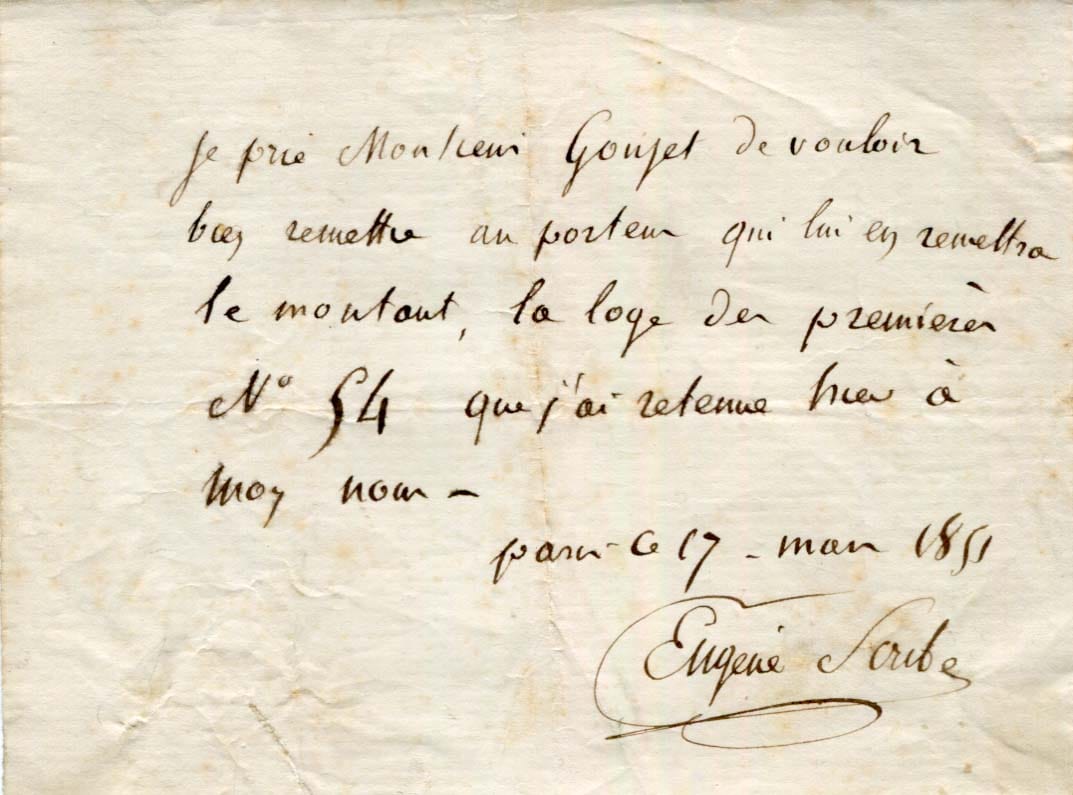 je prie Monsieur Goujet de vouloir
bien remettre au porteur qui lui en remettra
le montant, la loge des premières
N° 54 que j'ai retenue hier à
mon nom -
paris ce 17 - mars 1851
Eugène Scribe